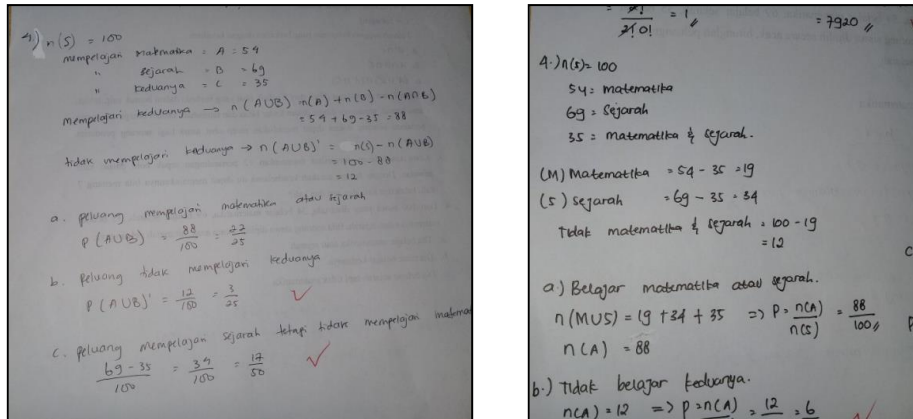 4) n(S) = 100
mempelajari matematika = A = 54
" sejarah = B = 69
" keduanya = C = 35
mempelajari keduanya → n(A∪B) = n(A) + n(B) - n(A∩B)
= 54 + 69 - 35 = 88
tidak mempelajari keduanya → n(A∪B)' = n(S) - n(A∪B)
= 100 - 88
= 12
a. peluang mempelajari matematika atau sejarah
P(A∪B) = 88/100 = 22/25
b. peluang tidak mempelajari keduanya
P(A∪B)' = 12/100 = 3/25
c. peluang mempelajari sejarah tetapi tidak mempelajari matema
69 - 35/100 = 34/100 = 17/50
2!0! = 1
= 7920
4.) n(s) = 100
54 = matematika
69 = Sejarah
35 = matematika & sejarah.
(M) Matematika = 54 - 35 = 19
(S) Sejarah = 69 - 35 = 34
Tidak matematika & sejarah = 100 - 19
= 12
a.) Belajar matematika atau sejarah.
n(MUS) = 19 + 34 + 35 => P = n(A)/n(S) = 88/100
n(A) = 88
b.) Tidak belajar keduanya.
n(A) = 12 => P = n(A) = 12 = 6